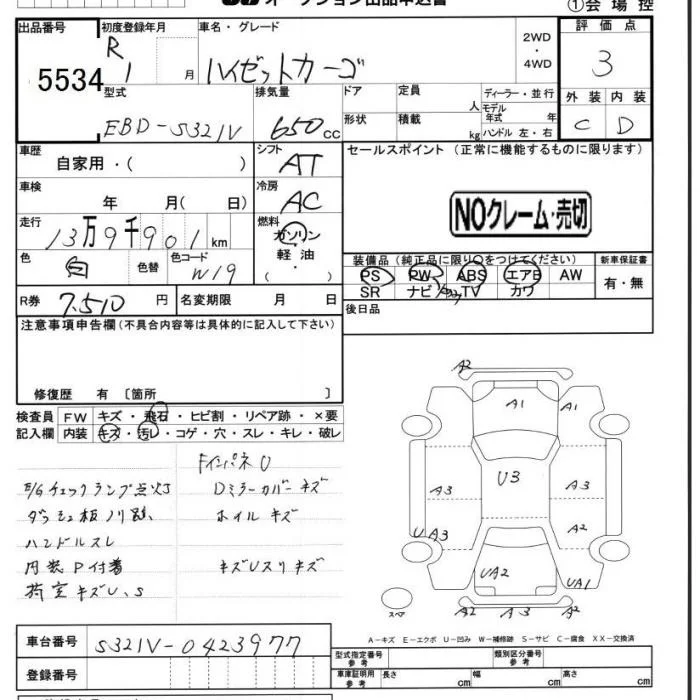 オークション出品申込書
①会場控
出品番号
5534
初度登録年月
R 1 月
車名・グレード
ハイゼットカーゴ
2WD
・
4WD
評価点
3
型式
EBD-S321V
排気量
650 cc
ドア
形状
定員 人
積載 kg
ディーラー・並行
モデル年式 年
ハンドル 左・右
外装 内装
C D
車歴
自家用・( )
シフト
AT
セールスポイント (正常に機能するものに限ります)
車検
年 月( 日)
冷房
AC
NOクレーム・売切
走行
13万9千901 km
燃料
ガソリン
・
軽油
・
( )
色
白
色替
色コード
W19
装備品 (純正品に限り○をつけてください)
PS PW ABS エアB AW
SR ナビ TV カワ
新車保証書
有・無
R券 7,510 円
名変期限 月 日
後日品
注意事項申告欄(不具合内容等は具体的に記入して下さい)
修復歴 有 〔箇所 〕
検査員記入欄
FW キズ・飛石・ヒビ割・リペア跡・×要
内装 キズ・汚レ・コゲ・穴・スレ・キレ・破レ
インパネU
E/Gチェックランプ点灯 Dミラーカバーキズ
ダッシュ板ノリ跡 ホイルキズ
ハンドルスレ
内装P付着 キズUスリキズ
荷室キズU、S
A2
A1 A1
U3
A3 A3
UA3 A2
UA2 UA1
A2 A3 A2
スペア
A-キズ E-エクボ U-凹み W-補修跡 S-サビ C-腐食 XX-交換済
車台番号 S321V-0423977
登録番号
型式指定番号 参考
類別区分番号 参考
車庫証明用 参考 長さ cm 幅 cm 高さ cm